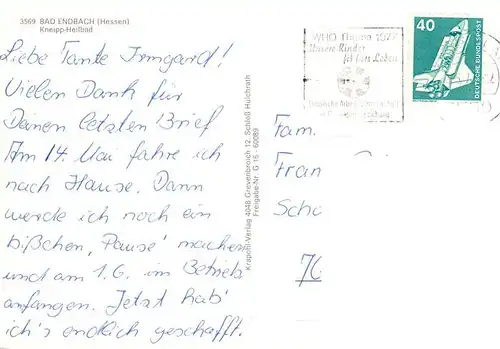 3569 BAD ENDBACH (Hessen)
Kneipp-Heilbad
Liebe Tante Irmgard!
Vielen Dank für
Deinen letzten Brief
Am 14. Mai fahre ich
nach Hause. Dann
werde ich noch ein
bißchen "Pause" machen
und am 1.6. im Betrieb
anfangen. Jetzt hab'
ich's endlich geschafft.
Krapohl-Verlag 4048 Grevenbroich 12, Schloß Hülchrath
Freigabe-Nr. G 16 - 60089
WHO 1977
Unsere Kinder
Leben
40
DEUTSCHE BUNDESPOST
Fam.
Fran
Schö